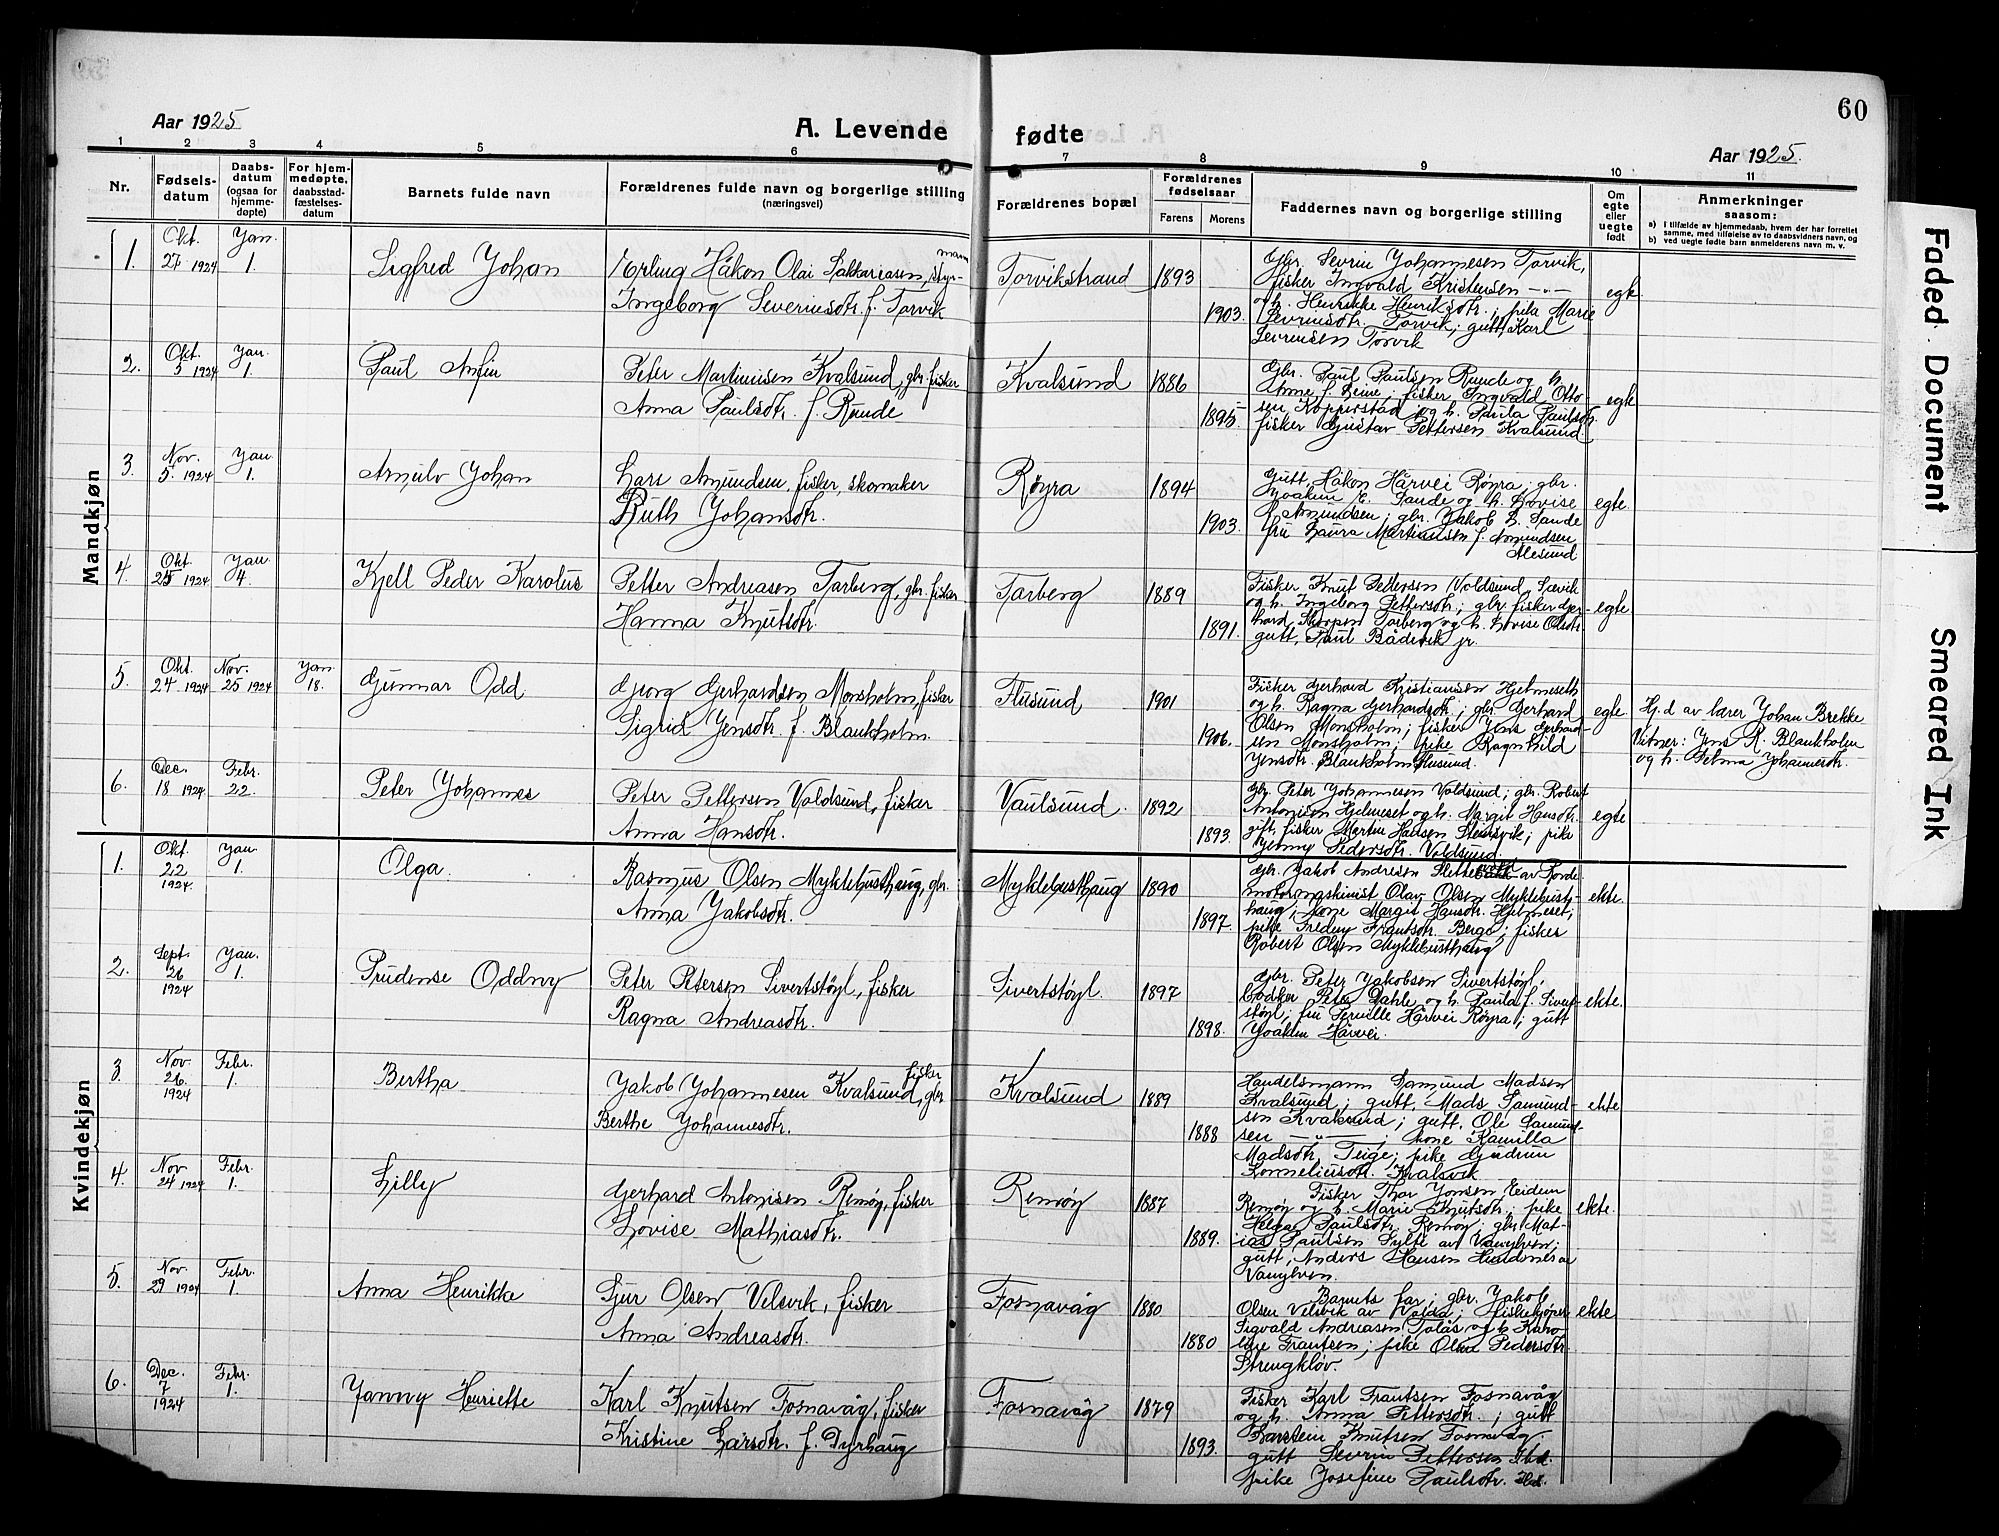 60
Aar 1925
A. Levende fødte
Aar 1925.
1 2 3 4 5 6 7 8 9 10 11
Nr.
Fødsels-
datum
Daabs-
datum
(ogsaa for
hjemme-
døpte)
For hjem-
medøpte,
daabsstad-
fæstelses-
datum
Barnets fulde navn
Forældrenes fulde navn og borgerlige stilling
(næringsvei)
Forældrenes bopæl
Forældrenes
fødselsaar
Farens Morens
Faddernes navn og borgerlige stilling
Om
egte
eller
uegte
født
Anmerkninger
saasom:
a) I tilfælde av hjemmedaab, hvem der har forrettet
samme, med tilføielse av to daabsvidners navn, og
b) ved uegte fødte barn anmelderens navn m. v.
Mandkjøn
1. Okt. 27 1924 Jan. 1. Sigfred Johan
Erling Håkon Olai Sakkariassen, styrmann
Ingeborg Severinsdtr. f. Torvik
Torvikstrand 1893 1903.
Gbr. Sevrin Johannesen Torvik,
fisker Ingvald Kristensen -"-
og h. Henrikke Henriksdtr.; pike Marie
Sevrinsdtr. Torvik; gutt, Karl
Sevrinsen Torvik
egte
2. Okt. 5 1924 Jan. 1. Paul Arfin
Peter Martinusen Kvalsund, gbr. fisker
Anna Paulsdtr. f. Runde
Kvalsund 1886 1895
Gbr. Paul Paulsen Runde og h.
Anne f. Reine; fisker Ingvald Otto-
sen Kopperstad og h. Paula Paulsdtr.
fisker Gustav Pettersen Kvalsund
egte
3. Nov. 5. 1924 Jan. 1. Arnulv Johan
Lars Amundsen, fisker, skomaker
Ruth Johansdtr.
Røyra 1894 1903.
Gutt, Håkon Hårvei Røyra; gbr.
Joakim E. Sande og h. Lovise
f. Amundsen; gbr. Jakob h. Sande
fru Laura Martinsen f. Amundsen
Ålesund
egte
4. Okt. 25 1924 Jan. 4. Kjell Peder Karolus
Petter Andreasen Tarberg, gbr. fisker
Hanna Knutsdtr.
Tarberg 1889 1891.
Fisker Knut Pettersen Voldsund, Sævik
og h. Ingeborg Pettersdtr.; gbr. fisker Ger-
hard Thorsen Tarberg og h. Lovise Olsdtr.
gutt, Paul Bådsvik jr.
egte
5. Okt. 24 1924 Nov. 25 1924 Jan. 18. Gunnar Odd
Georg Gerhardsen Monsholm, fisker
Sigrid Jensdtr. f. Blankholm.
Flusund 1901 1906.
Fisker Gerhard Kristiansen Hjelmeseth
og h. Ragna Gerhardsdtr.; gbr. Gerhard
Olsen Monsholm; fisker Jens Gerhard-
sen Monsholm; pike Ragnhild
Jensdtr. Blankholm Flusund.
egte
Hj.d av lærer Johan Brekke
Vitner: Jens R. Blankholm
og h. Selma Johannesdtr.
6. Dec. 18 1924 Febr. 22. Peter Johannes
Peter Pettersen Voldsund, fisker
Anna Hansdtr.
Vaulsund. 1892 1893.
Gbr. Peter Johannesen Voldsund; gbr. Robert
Antonsen Hjelmeset og h. Margit Hansdtr.
gift, fisker Martin Hansen Stensvik; pike
Jenny Pedersdtr. Voldsund.
egte
Kvindekjøn
1. Okt. 22 1924. Jan. 1. Olga.
Rasmus Olsen Myklebusthaug, gbr.
Anna Jakobsdtr.
Myklebusthaug 1890 1897.
Gbr. Jakob Andresen av Rovde
motormaskinist Olav Olsen Myklebust-
haug; kone Margit Hansdtr. Hjelmeset;
pike Fredny Frantsdtr. Berge; fisker
Robert Olsen Myklebusthaug
ekte.
2. Sept. 26 1924 Jan. 1. Prudense Oddny
Peter Petersen Sivertstøyl, fisker
Ragna Andreasdtr.
Sivertstøyl. 1897 1898.
Gbr. Peter Jakobsen Sivertstøyl,
bødker Peter Dahle og h. Paula f. Sivert-
støyl; fru Pernille Hårvei Røyra; gutt
Joakim Hårvei.
ekte.
3. Nov. 26. 1924 Febr. 1. Bertha
Jakob Johannesen Kvalsund, gbr fisker
Berthe Johannesdtr.
Kvalsund 1889 1888
Handelsmann Samund Madsen
Kvalsund; gutt, Mads Samund-
sen Kvalsund; gutt, Ole Samund-
sen -"-; kone Kamilla
Madsdtr. Teige; pike Gudrun
Korneliusdtr. Kvalsvik
ekte
4. Nov. 24 1924 Febr. 1. Lilly
Gerhard Antonisen Remøy, fisker
Lovise Mathiasdtr.
Remøy 1887 1889.
Fisker Thor Jonsen Eidem
Remøy og h. Marie Knutsdtr.; pike
Helga Paulsdtr. Remøy; gbr. Mat-
ias Paulsen Sylte av Vanylven;
gutt, Anders Hansen Hundsnes av
Vanylven.
ekte.
5. Nov. 29 1924 Febr. 1. Anna Henrikke
Sjur Olsen Velsvik, fisker
Anna Andreasdtr.
Fosnavåg 1880 1880
Barnets far; gbr. Jakob
Olsen Velsvik av Volda; fiskekjøper
Sigvald Andreasen Tolås og h. Karo-
line Frantsen; pike Olina Pedersdtr.
Strengkløv
ekte
6. Dec. 7 1924 Febr. 1. Janny Henriette
Karl Knutsen Fosnavåg, fisker
Kristine Larsdtr. f. Dyrhaug
Fosnavåg 1879 1893.
Fisker Karl Frantsen Fosnavåg
og h. Anna Pettersdtr.; gutt
Karsten Knutsen Fosnavåg;
gutt Severin Pettersen Ibd.
pike Josefine Paulsdtr. Ibd.
Faded Document
Smeared Ink